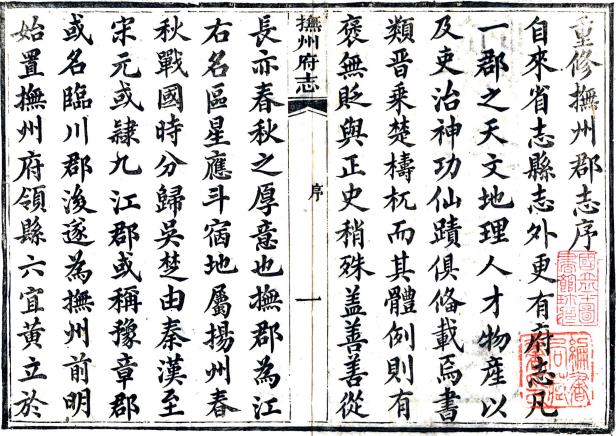 重修撫州郡志序
自來省志縣志外更有府志凡
一郡之天文地理人才物產以
及吏治神功仙蹟俱俻載焉書
類晉乘楚檮杌而其體例則有
褒無貶與正史稍殊盖善善從
撫州府志
序
一
長亦春秋之厚意也撫郡為江
右名區星應斗宿地屬揚州春
秋戰國時分歸吳楚由秦漢至
宋元或隸九江郡或稱豫章郡
或名臨川郡後遂為撫州前明
始置撫州府領縣六宜黃立於